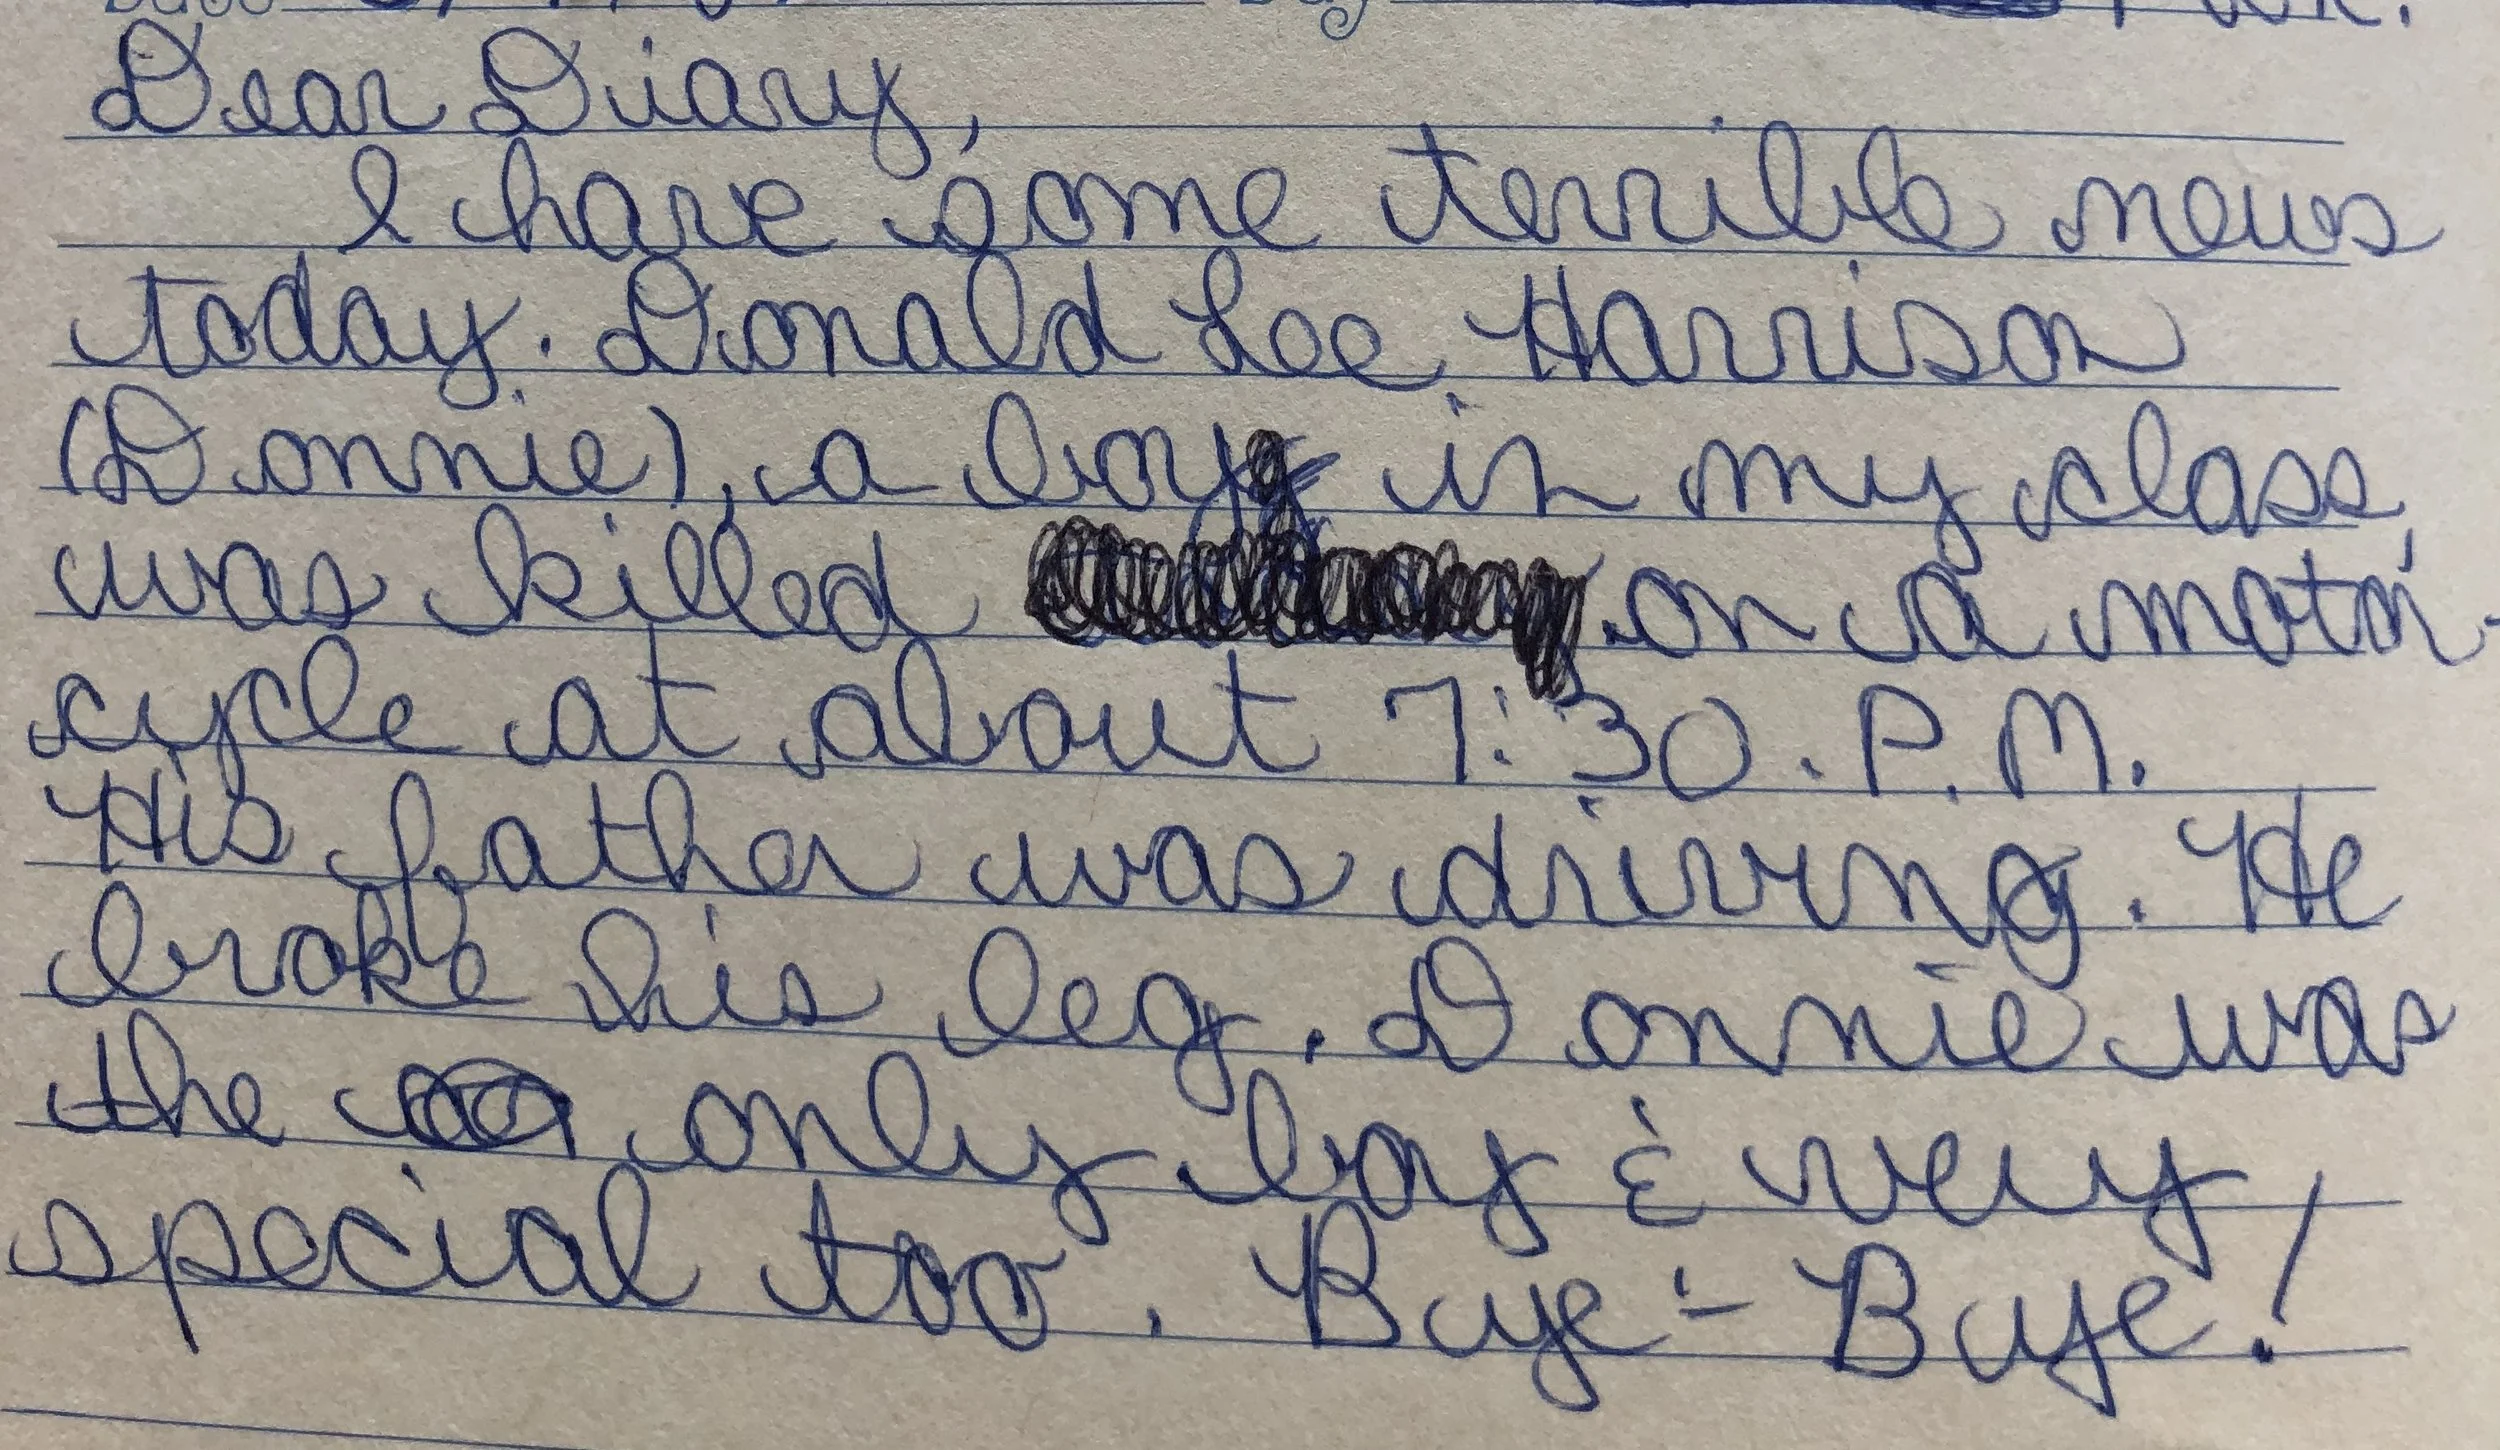 Dear Diary,
I have some terrible news
today. Donald Lee Harrison
(Donnie), a boy in my class,
was killed on a motor-
cycle at about 7:30. P.M.
His father was driving. He
broke his leg. Donnie was
the only boy & very
special too. Bye-Bye!